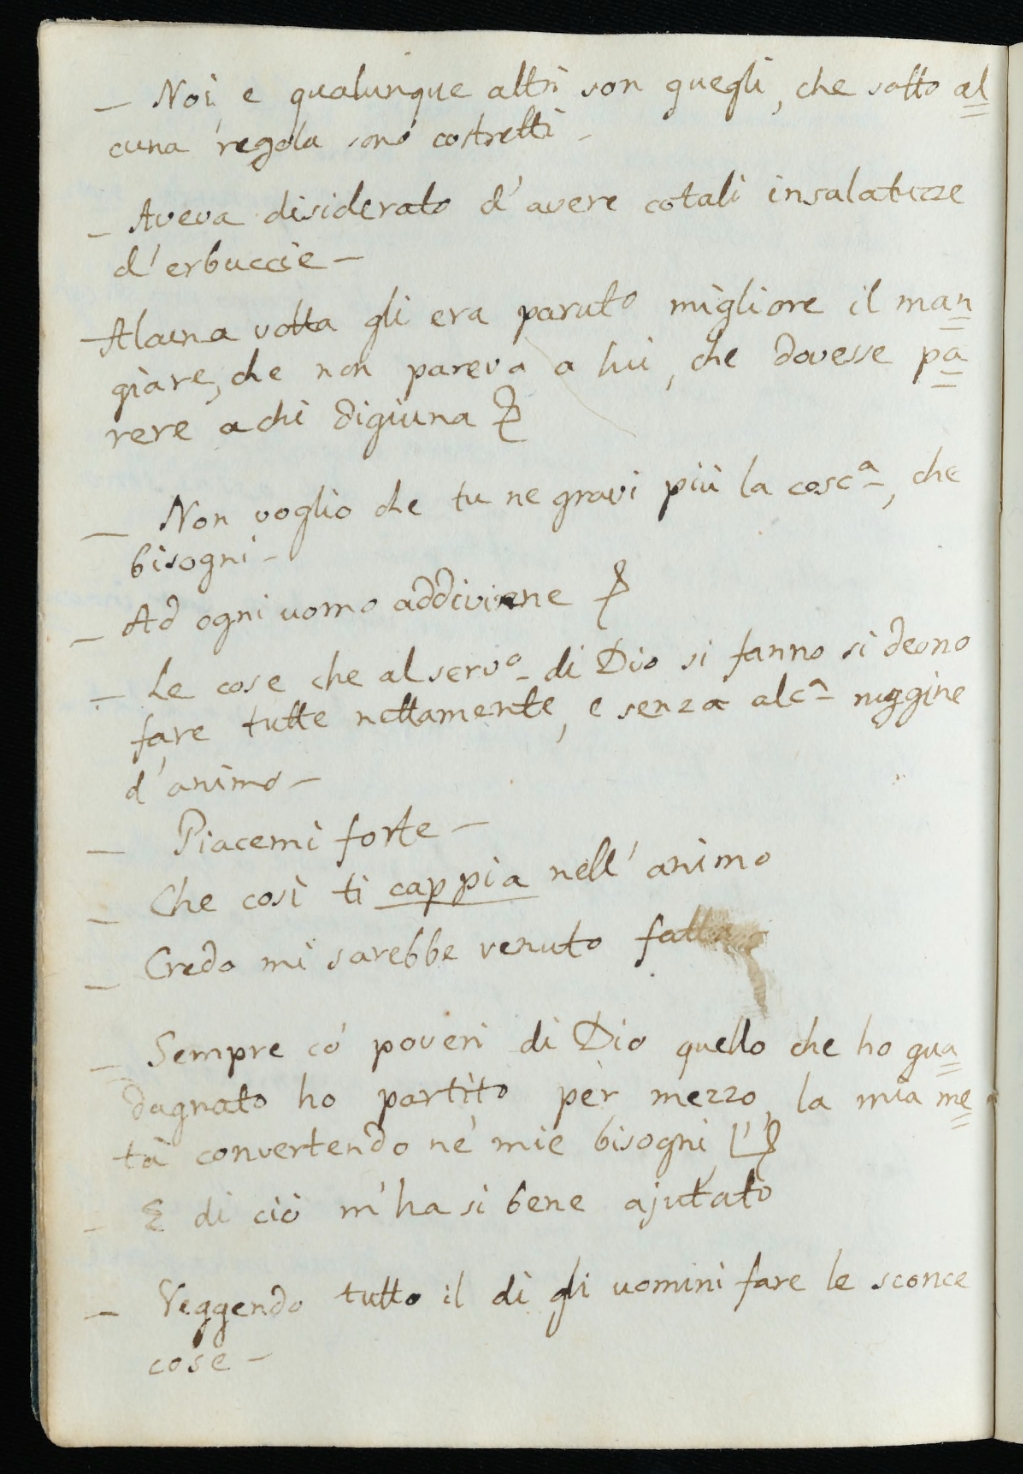 – Noi, e qualunque altri son quegli, che sotto al
cuna regola sono costretti –
– Aveva disiderato d'avere cotali insalatuzze
d'erbuccie –
– Alcuna volta gli era paruto migliore il man
giare, che non pareva a lui, che dovesse pa
rere a chi digiuna
– Non voglio che tu ne gravi più la coscª, che
bisogni –
– Ad ogni uomo addiviene
– Le cose che al servº di Dio si fanno si deono
fare tutte nettamente, e senza alcª ruggine
d'animo –
– Piacemi forte –
– Che così ti cappia nell'animo
– Credo mi sarebbe venuto
– Sempre co' poveri di Dio quello che ho gua
dagnato ho partito per mezzo, la mia me
tà convertendo ne' miei bisogni,
– E di ciò m'ha sì bene ajutato
– Veggendo tutto il dì gli uomini fare le sconce
cose –